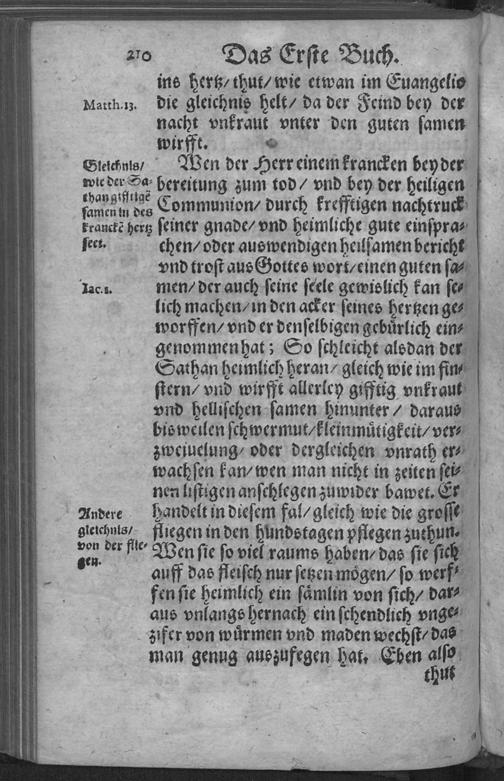 210
Das Erste Buch.
ins hertz/ thut/ wie etwan im Euangelio
Matth. 13.
die gleichnis helt/ da der Feind bey der
nacht vnkraut vnter den guten samen
wirfft.
Gleichnis/
wie der Sa-
than gifftigē
samen in des
kranckē hertz
seet.
Wen der Herr einem krancken bey der
bereitung zum tod/ vnd bey der heiligen
Communion/ durch krefftigen nachtruck
seiner gnade/ vnd heimliche gute einspra-
chen/ oder auswendigen heilsamen bericht
vnd trost aus Gottes wort/ einen guten sa-
Iac. 1.
men/ der auch seine seele gewislich kan se-
lich machen/ in den acker seines hertzen ge-
worffen/ vnd er denselbigen gebürlich ein-
genommen hat; So schleicht alsdan der
Sathan heimlich heran/ gleich wie im fin-
stern/ vnd wirfft allerley gifftig vnkraut
vnd hellischen samen hinunter/ daraus
bisweilen schwermut/ kleinmütigkeit/ ver-
zweiuelung/ oder dergleichen vnrath er-
wachsen kan/ wen man nicht in zeiten sei-
nen listigen anschlegen zuwider bawet. Er
Andere
gleichnis/
von der flie-
gen.
handelt in diesem fal/ gleich wie die grosse
fliegen in den hundstagen pflegen zuthun.
Wen sie so viel raums haben/ das sie sich
auff das fleisch nur setzen mögen/ so werf-
fen sie heimlich ein sämlin von sich/ dar-
aus vnlangs hernach ein schendlich vnge-
zifer von würmen vnd maden wechst/ das
man genug auszufegen hat. Eben also
thut